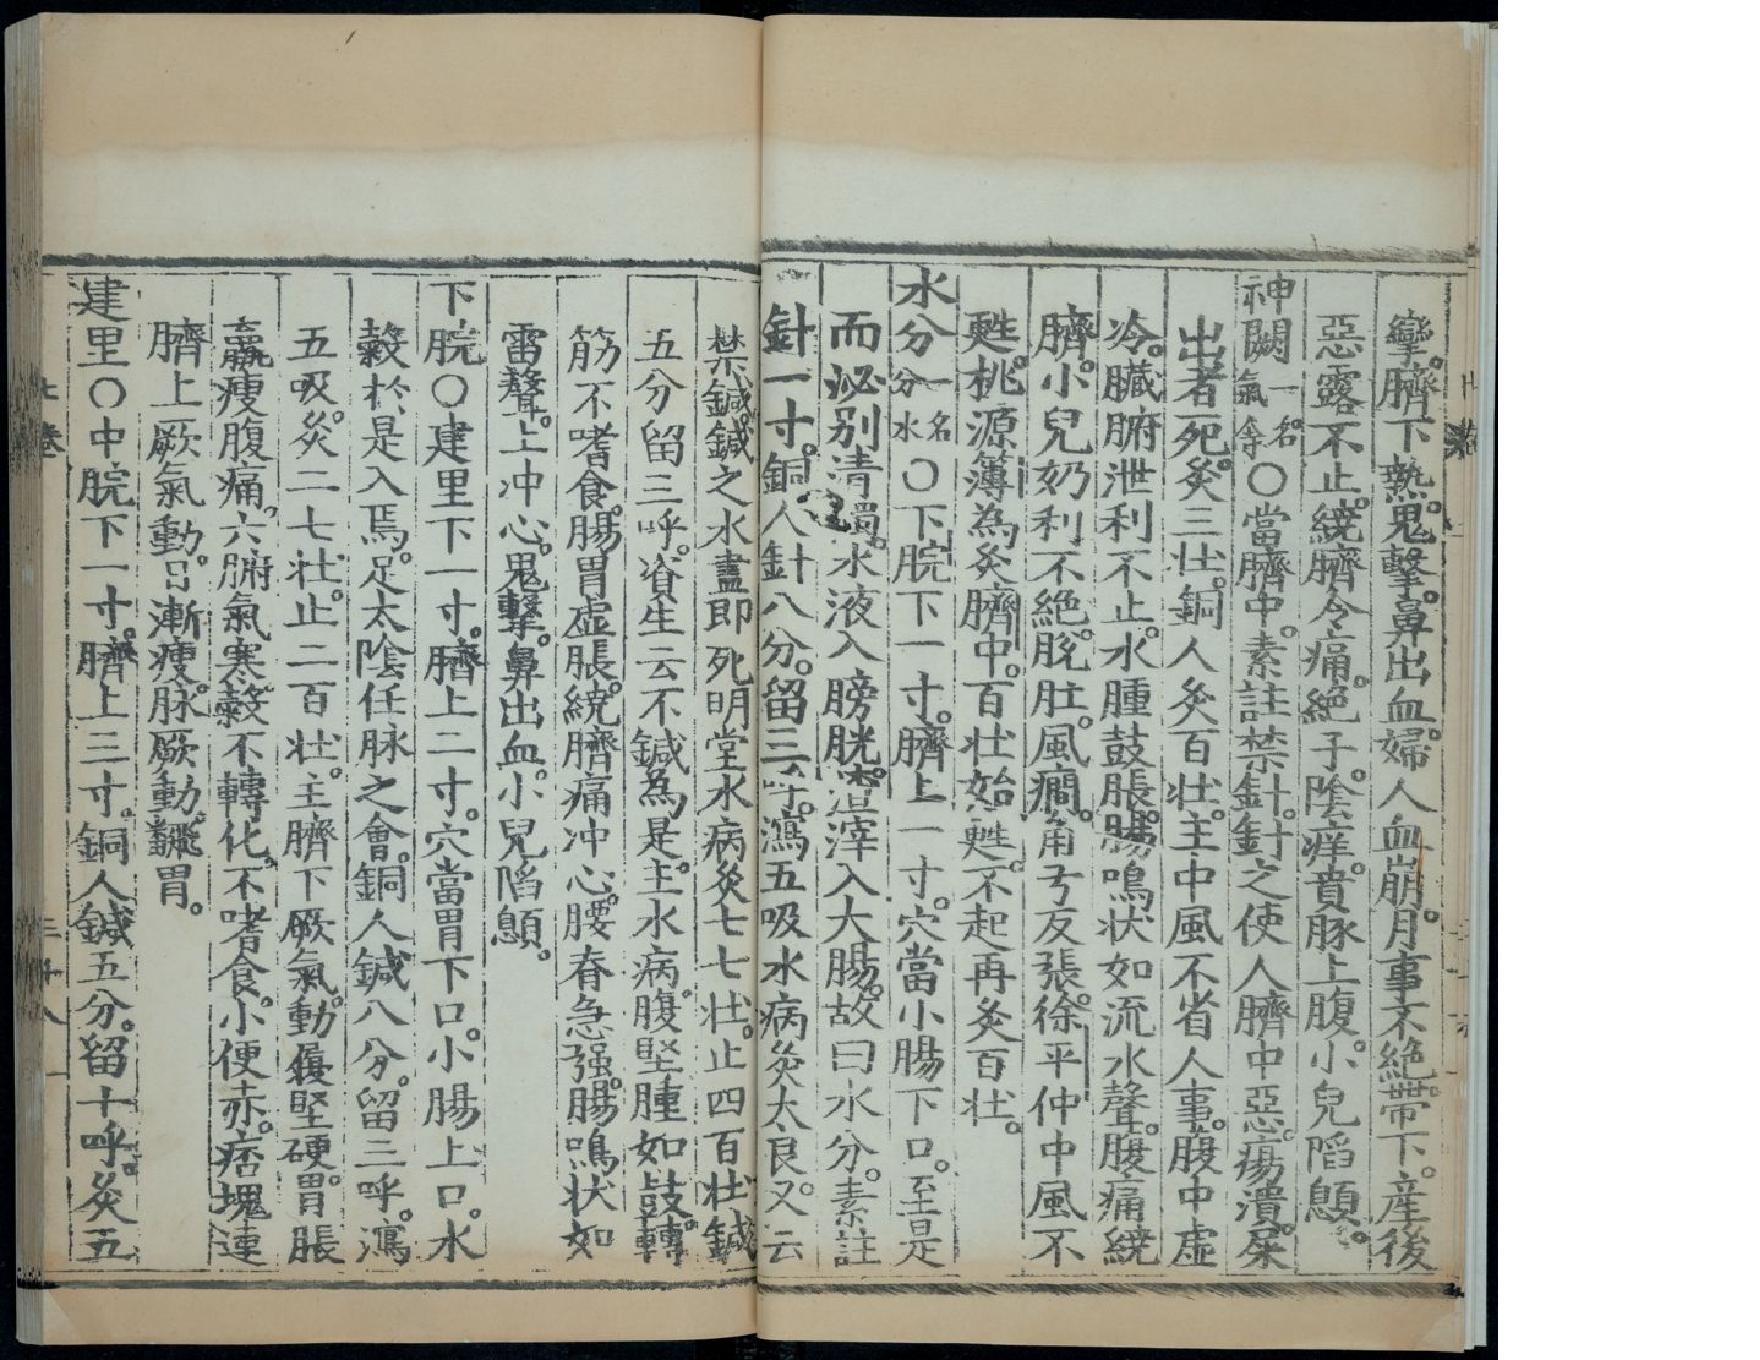 攣。臍下熱。鬼擊。鼻出血。婦人血崩。月事不絕。帶下。産後
惡露不止。繞臍冷痛。絕子。陰痒。賁豚上腹。小兒陷顖。
神闕一名氣舍〇當臍中。素註禁針。針之使人臍中惡瘍潰。屎
出者死。灸三壯。銅人灸百壯。主中風不省人事。腹中虛
冷。臟腑泄利不止。水腫鼓脹。腸鳴状如流水聲。腹痛繞
臍。小兒奶利不絕。脫肛。風癎。角弓反張。徐平仲中風不
甦。桃源簿為灸臍中。百壯始甦。不起再灸百壯。
水分一名分水〇下脘下一寸。臍上一寸。穴當小腸下口。至是
而泌別清濁。水液入膀胱。渣滓入大腸。故曰水分。素註
針一寸。銅人針八分。留三呼。瀉五吸水病灸大良。又云
禁鍼。鍼之水盡即死明堂水病灸七七壯。止四百壯鍼
五分留三呼。資生云不鍼為是。主水病。腹堅腫如鼓。轉
筋不嗜食。腸胃虛脹。繞臍痛冲心。腰脊急强。腸鳴状如
雷聲。上冲心。鬼擊。鼻出血。小兒陷顖。
下脘〇建里下一寸。臍上二寸。穴當胃下口。小腸上口。水
穀於是入焉。足太陰任脉之會。銅人鍼八分。留三呼。瀉
五吸灸。二七壯。止二百壯。主臍下厥氣動。腹堅硬。胃脹
羸瘦腹痛。六腑氣寒。穀不轉化。不嗜食。小便赤。痞塊連
臍上厥氣動。日漸瘦。脉厥動。飜胃。
建里〇中脘下一寸。臍上三寸。銅人鍼五分。留十呼。灸五